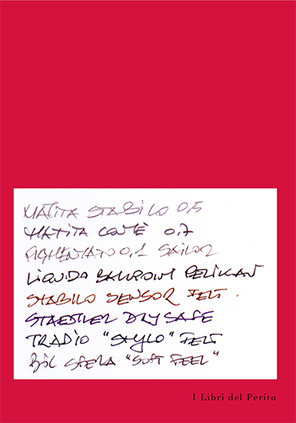 MATITA STABILO 0,5
MATITA CONTÈ 0,7
PIGMENTATO 0,1 SAILOR
LIQUIDO BALLPOINT PELIKAN
STABILO SENSOR FELT.
STAEDTLER DRY SAFE
TRADIO "STYLO" FELT
BIC SFERA "SOFT FEEL"
I Libri del Perito